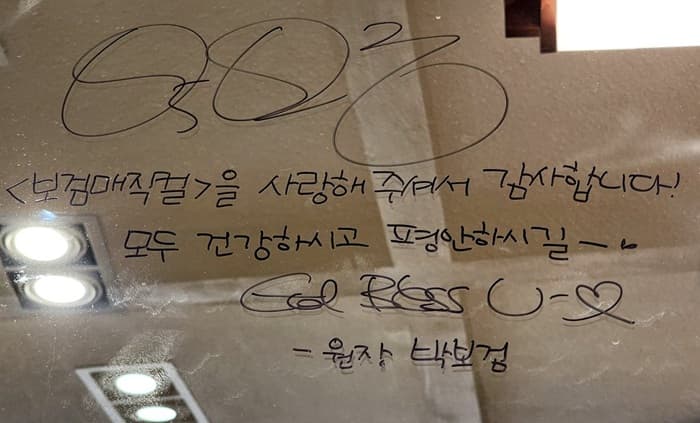 <보검매직컬>을 사랑해 주셔서 감사합니다!
모두 건강하시고 평안하시길~.
God Bless U-♡
- 원장 박보검